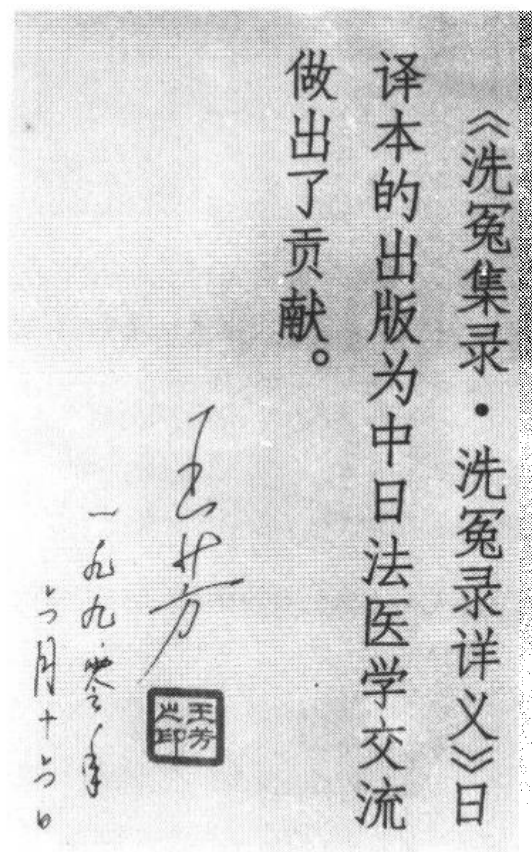 《洗冤集录·洗冤录详义》日
译本的出版为中日法医学交流
做出了贡献。
王芳
王芳之印
一九九零年
六月十六日